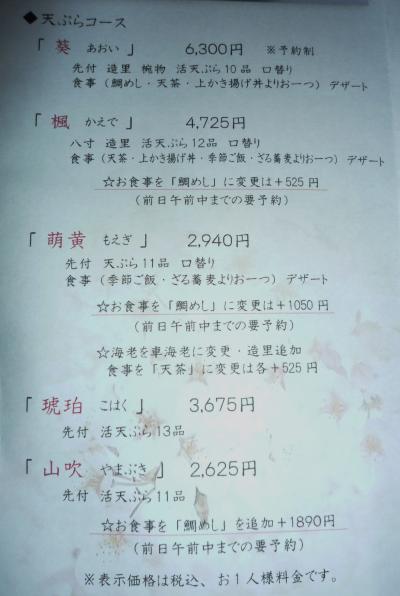 ◆天ぷらコース
「葵 あおい」 6,300円 ※予約制
先付 造里 椀物 活天ぷら10品 口替り
食事（鯛めし・天茶・上かき揚げ丼よりお一つ）デザート
「楓 かえで」 4,725円
八寸 造里 活天ぷら12品 口替り
食事（天茶・上かき揚げ丼・季節ご飯・ざる蕎麦よりお一つ）デザート
☆お食事を「鯛めし」に変更は+525円
（前日午前中までの要予約）
「萌黄 もえぎ」 2,940円
先付 天ぷら11品 口替り
食事（季節ご飯・ざる蕎麦よりお一つ）デザート
☆お食事を「鯛めし」に変更は+1050円
（前日午前中までの要予約）
☆海老を車海老に変更・造里追加
食事を「天茶」に変更は各+525円
「琥珀 こはく」 3,675円
先付 活天ぷら13品
「山吹 やまぶき」 2,625円
先付 活天ぷら11品
☆お食事を「鯛めし」を追加+1890円
（前日午前中までの要予約）
※表示価格は税込、お1人様料金です。